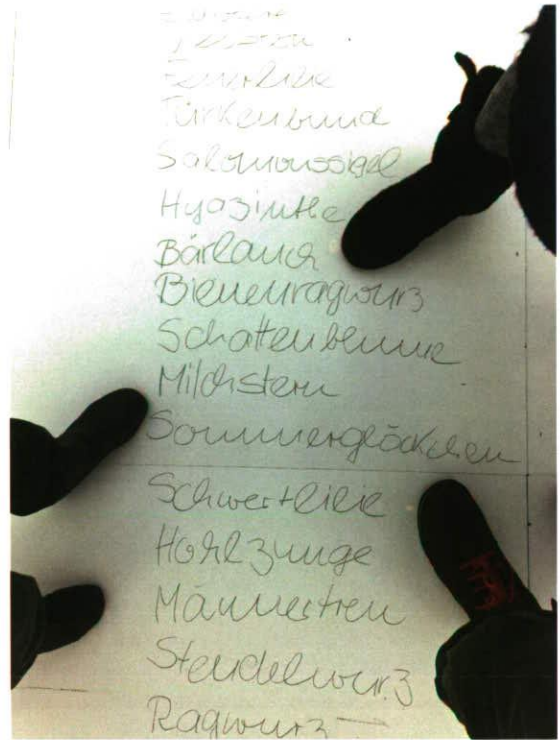 Feuerlilie
Türkenbund
Salomonssigel
Hyazinthe
Bärlauch
Bienenragwurz
Schattenblume
Milchstern
Sommerglöckchen
Schwertlilie
Hohlzunge
Männertreu
Stendelwurz
Ragwurz